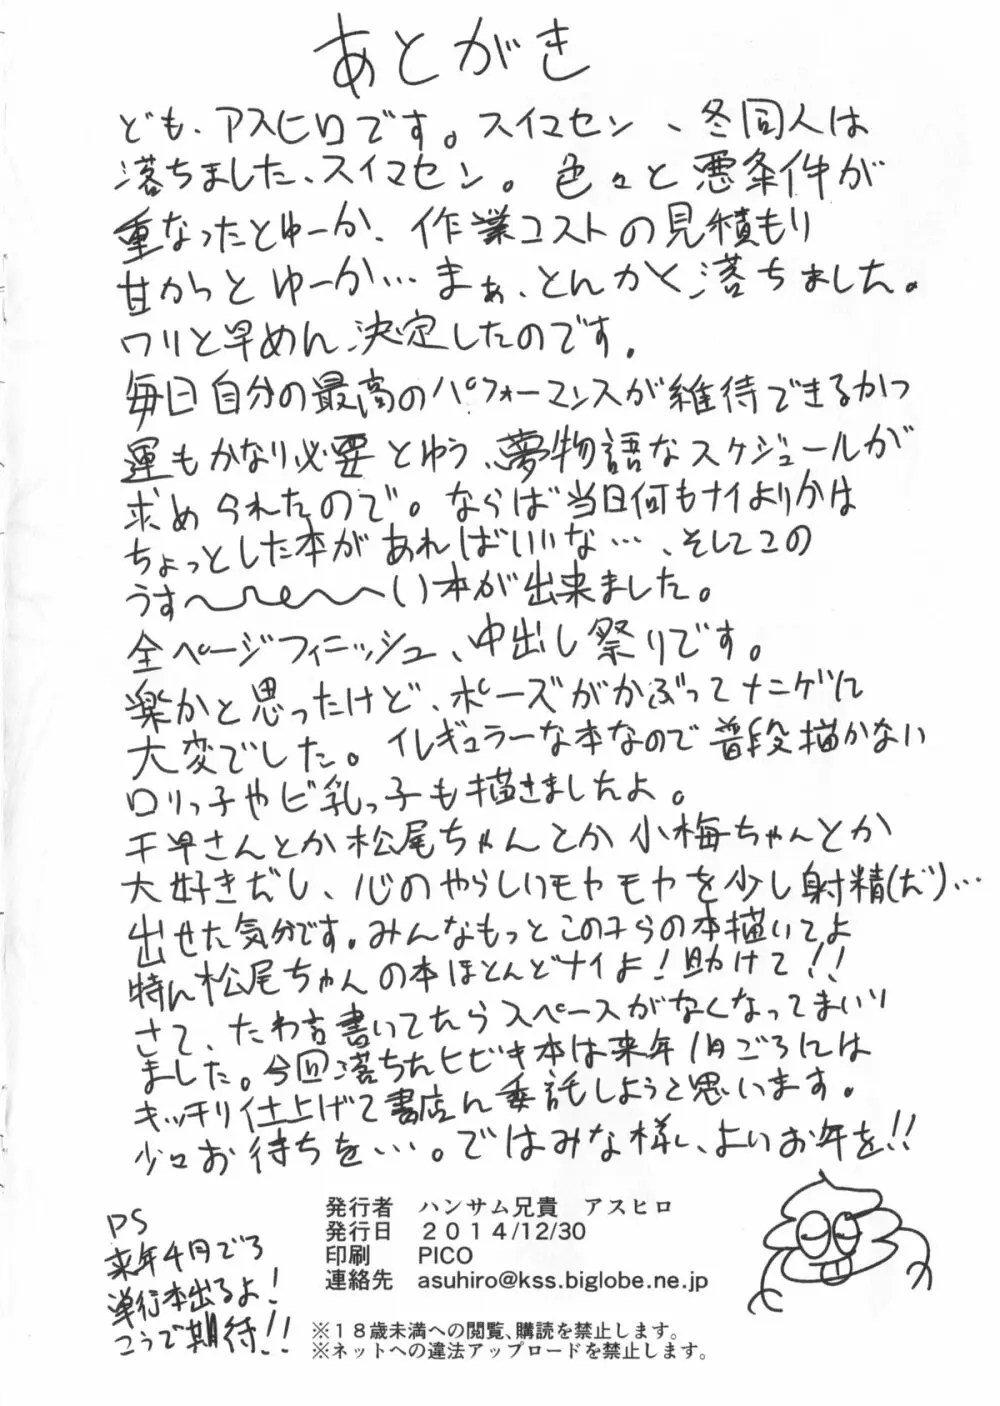 あとがき
ども、アスヒロです。スイマセン、冬同人は
落ちました、スイマセン。色々と悪条件が
重なったとゆーか、作業コストの見積もり
甘かっとゆーか…まぁ、とんかく落ちました。
ワリと早めん決定したのです。
毎日自分の最高のパフォーマンスが維待できるかつ
運もかなり必要とゆう、夢物語なスケジュールが
求められたので。ならば当日何もナイよりかは
ちょっとした本があればいいな…、そしてこの
うす〜〜〜い本が出来ました。
全ページフィニッシュ、中出し祭りです。
楽かと思ったけど、ポーズがかぶってナニゲに
大変でした。イレギュラーな本なので普段描かない
ロリっ子やビ乳っ子も描きましたよ。
千早さんとか松尾ちゃんとか小梅ちゃんとか
大好きだし、心のやらしいモヤモヤを少し射精(だ)…
出せた気分です。みんなもっとこの子らの本描いてよ
特ん松尾ちゃんの本ほとんどナイよ！助けて！！
さて、たわ言書いてたらスペースがなくなってまいり
ました。今回落ちたヒビキ本は来年1月ごろには
キッチリ仕上げて書店ん委託しようと思います。
少々お待ちを…。ではみな様し、よいお年を！！
発行者　ハンサム兄貴　アスヒロ
発行日　２０１４/12/30
印刷　PICO
連絡先　asuhiro@kss.biglobe.ne.jp
※１８歳未満への閲覧、購読を禁止します。
※ネットへの違法アップロードを禁止します。
PS
来年4月ごろ
単行本出るよ！
こうご期待！！